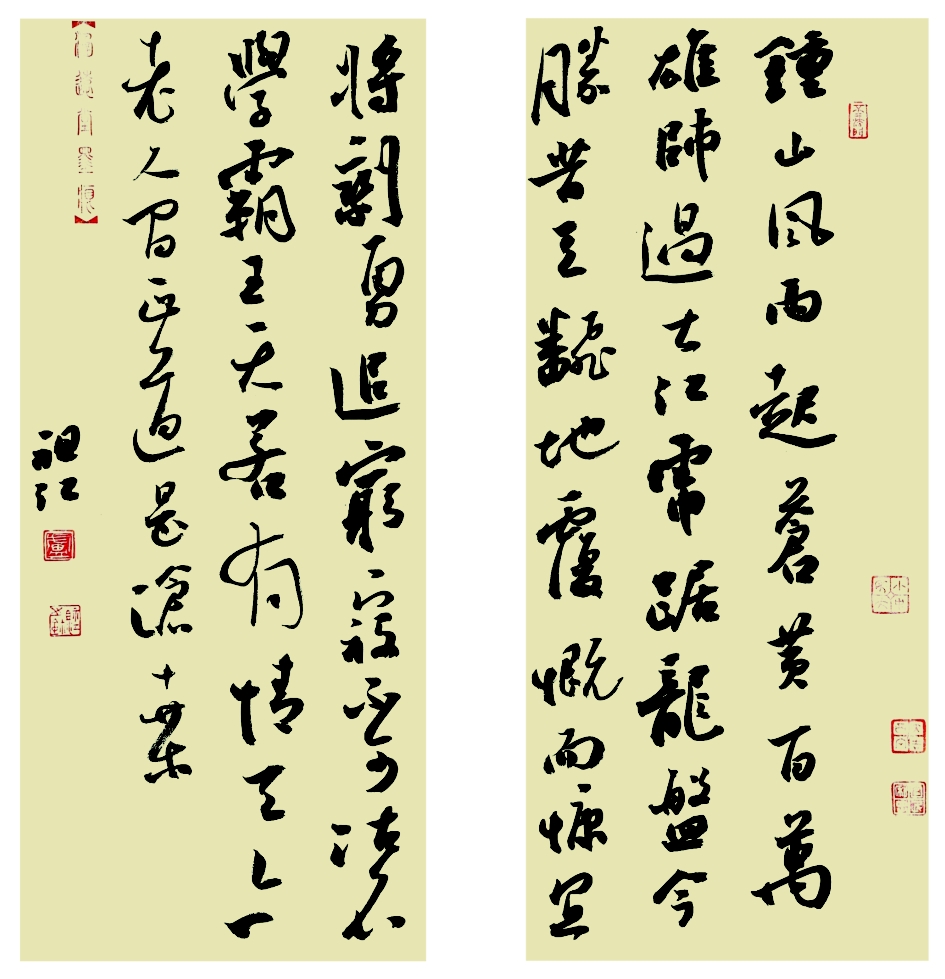 鍾山風雨起蒼黃百萬
雄師過大江虎踞龍盤今
勝昔天翻地覆慨而慷宜
將剩勇追窮寇不可沽名
學霸王天若有情天亦
老人間正道是滄桑
祖江